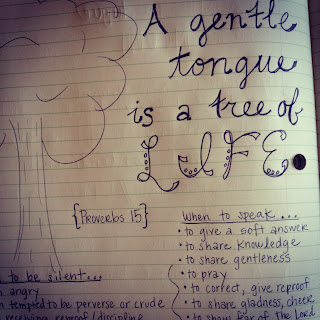 A gentle
tongue
is a tree of
LIFE
{Proverbs 15}
When to speak...
• to give a soft answer
• to share knowledge
• to share gentleness
• to pray
• to correct, give reproof
• to share gladness, cheer
• to show fear of the Lord
to be silent...
angry
tempted to be perverse or crude
receiving reproof/discipline